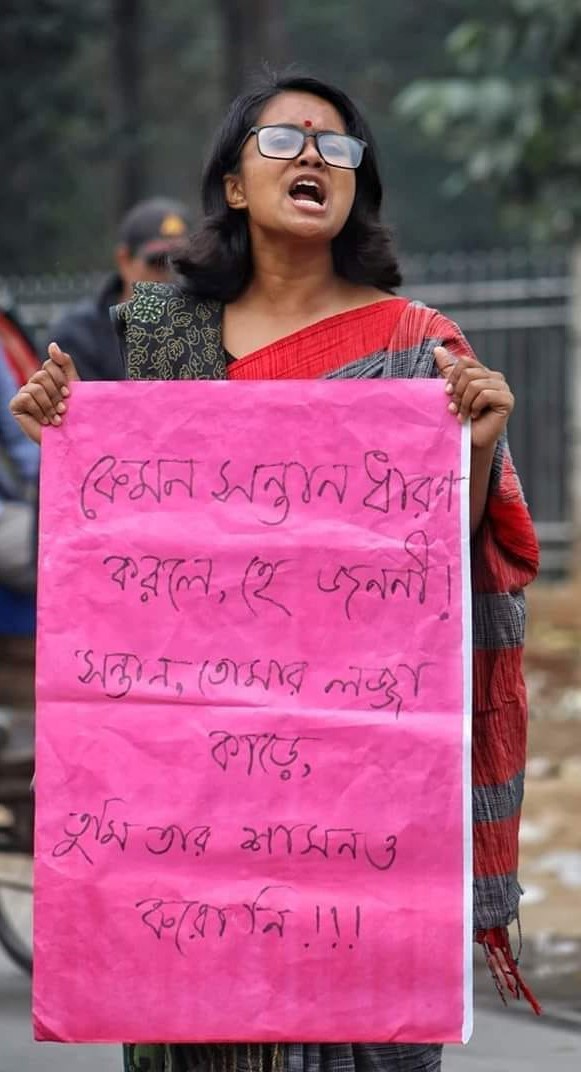 কেমন সন্তান ধারণ
করলে, হে জননী!
সন্তান, তোমার লজ্জা
কাড়ে,
তুমি তার শাসনও
করোনি!!!